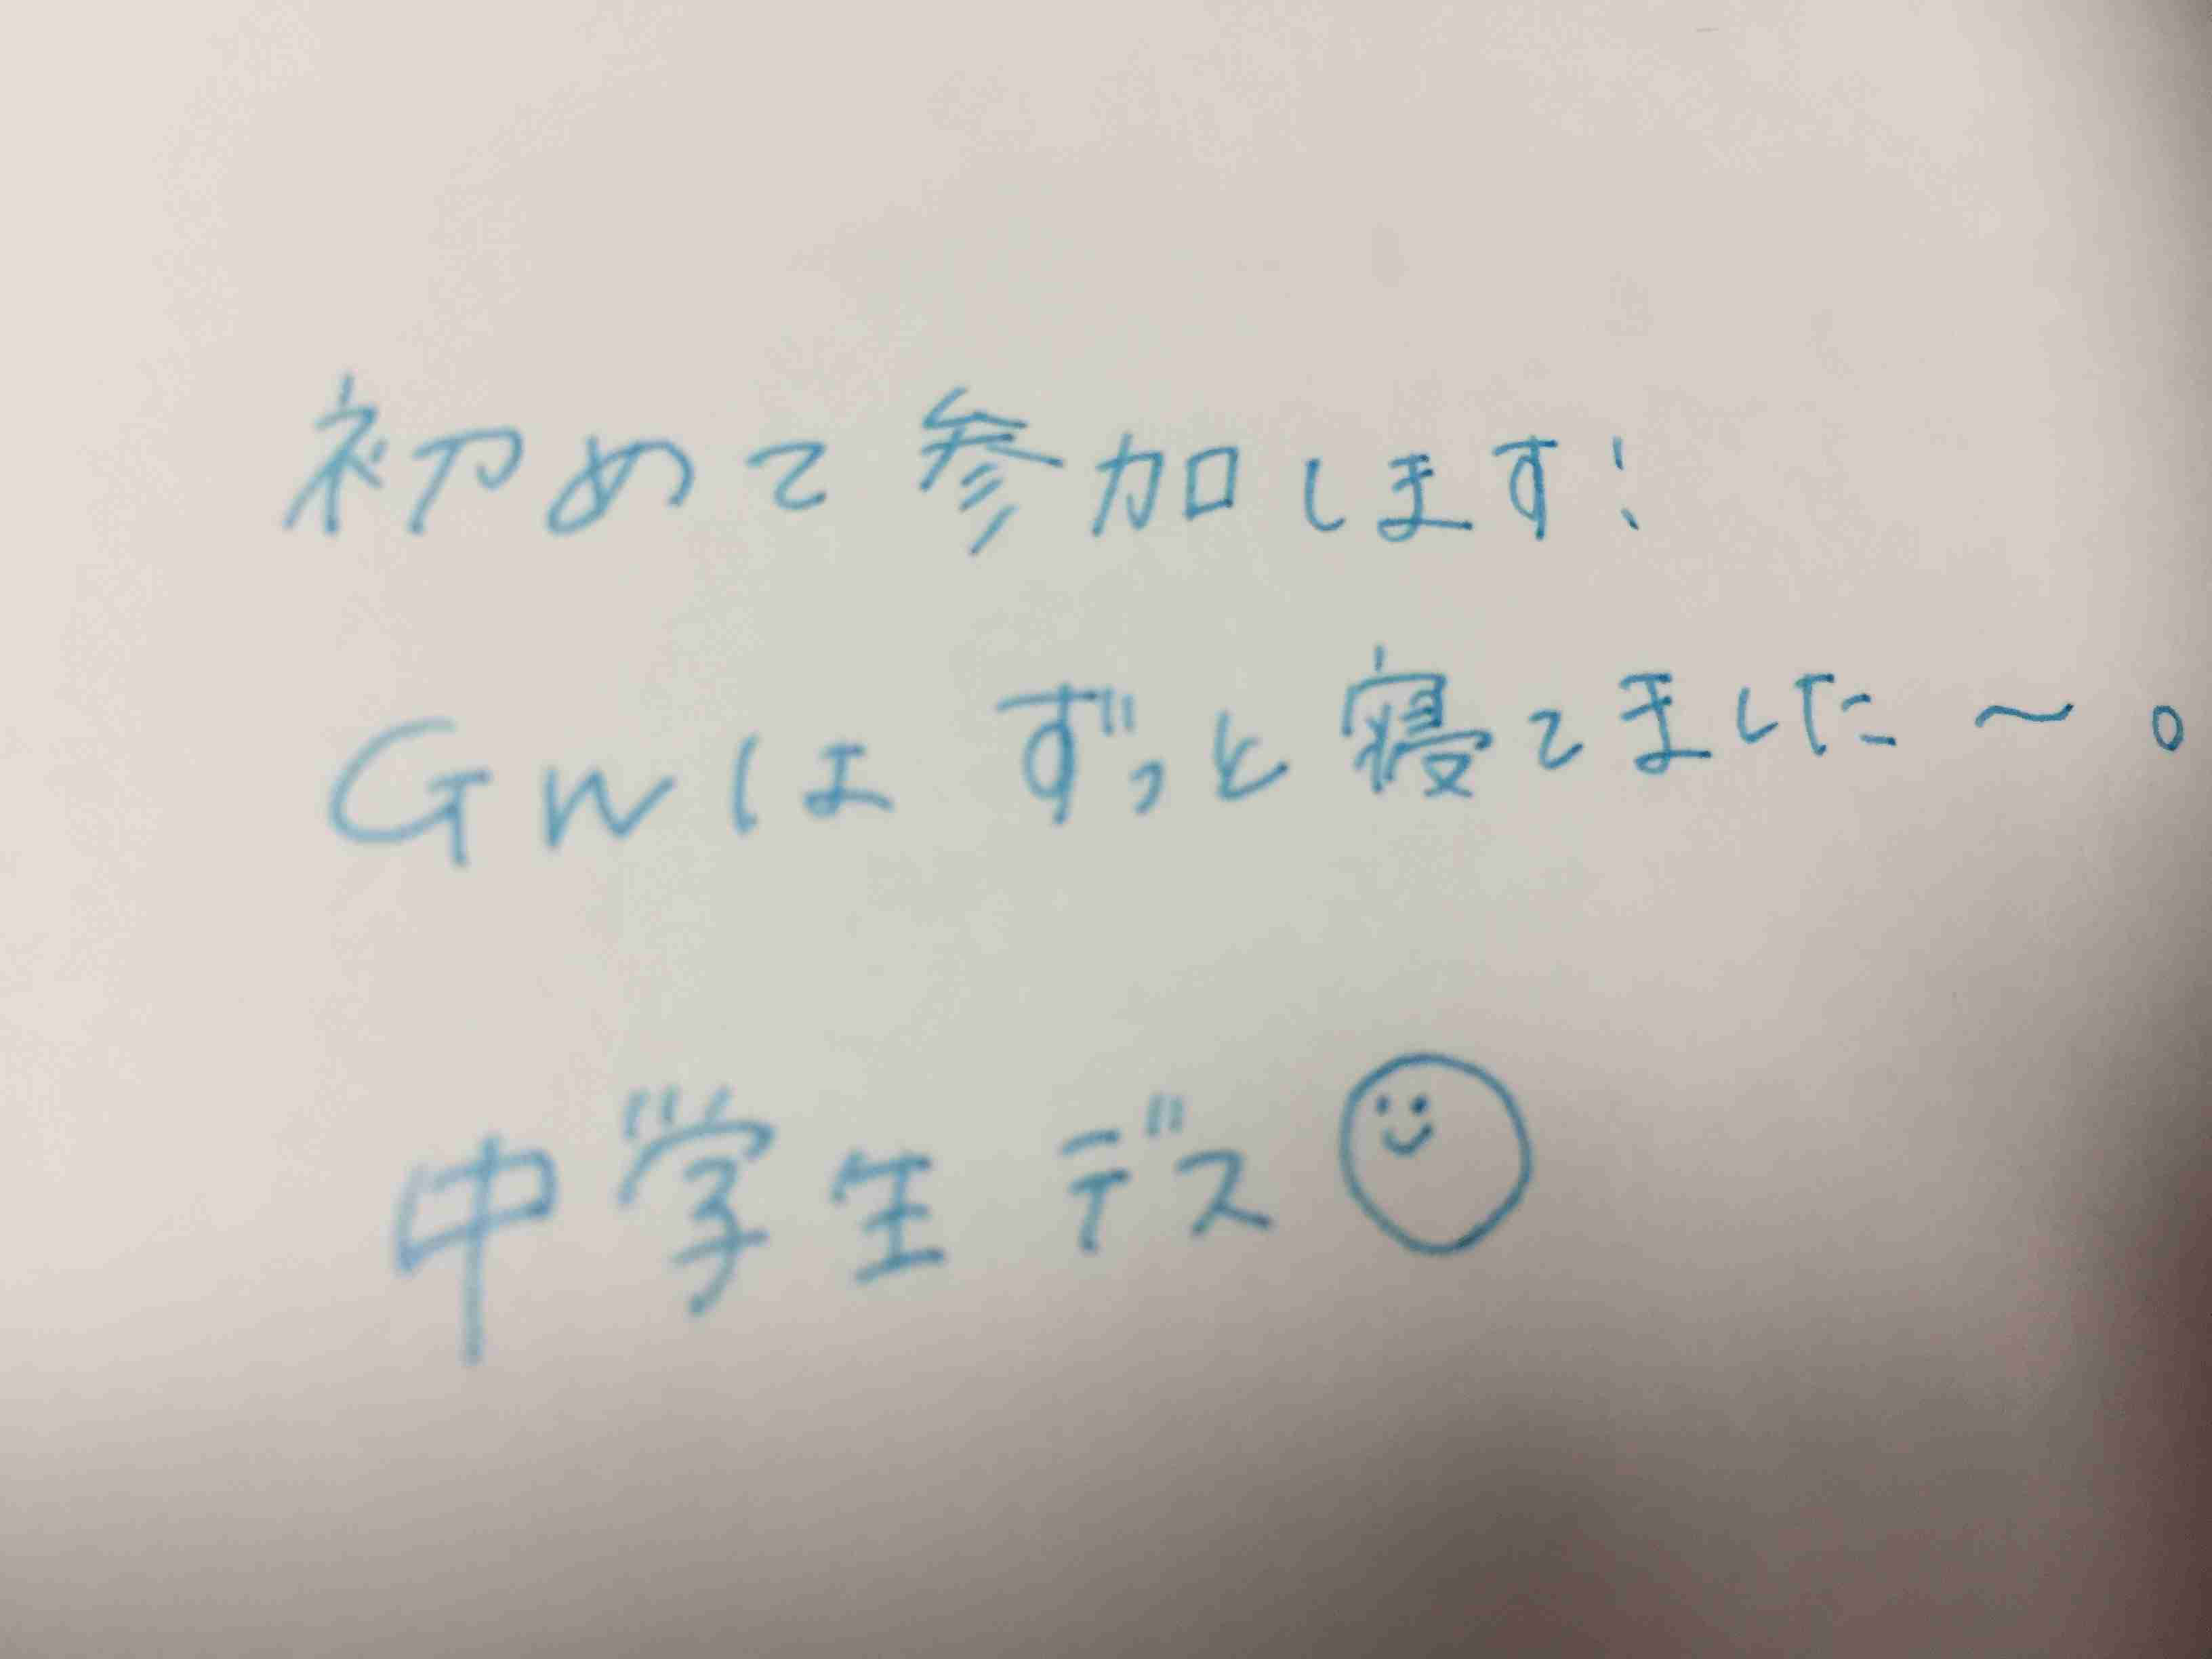 初めて参加します!
GWは ずっと寝てました〜。
中学生デス